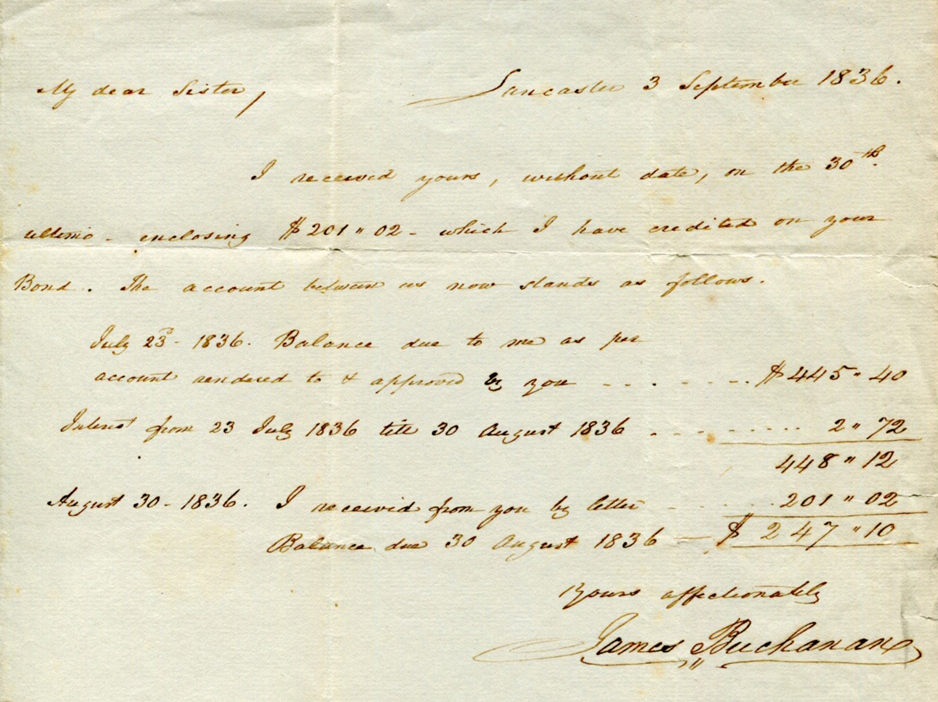 My dear Sister, Lancaster 3 September 1836.
I received yours, without date, on the 30th.
ultimo - enclosing $201"02 - which I have credited on your
Bond. The account between us now stands as follows.
July 23d - 1836. Balance due to me as per
account rendered to & approved by you - - - . - - - . $445"40
Interest from 23 July 1836 till 30 August 1836 . - - . - - . . . . . 2"72
448"12
August 30 - 1836. I received from you by letter - - - . - . . 201"02
Balance due 30 August 1836 — $247"10
Yours affectionately
James Buchanan